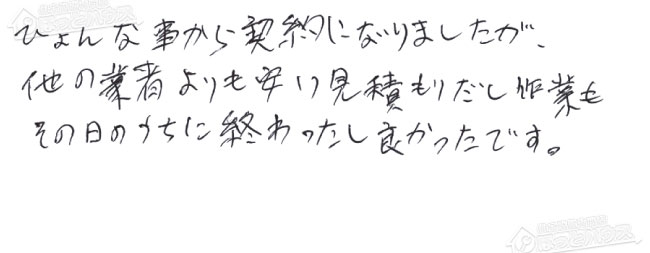 ひょんな事から契約になりましたが、
他の業者よりも安い見積もりだし作業も
その日のうちに終わったし良かったです。